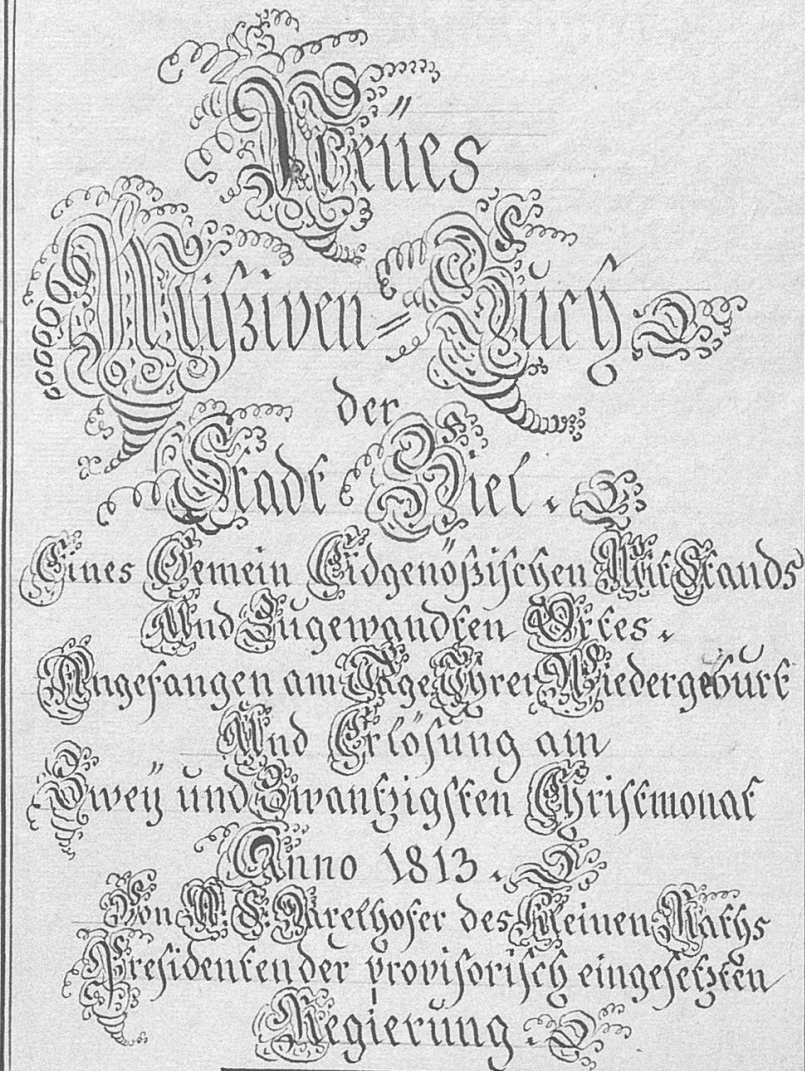 Neües
Mißiven=Bůch
der
Stadt Biel.
Eines Gemein Eidgenößischen Mit Stands
Und Zugewandten Ortes.
Angefangen am Tage Ihrer Wiedergeburt
Und Erlösung am
Zweÿ und Zwantzigsten Christmonat
Anno 1813.
Von des Kleinen Raths
Presidenten der provisorisch eingesetzten
Regierung.